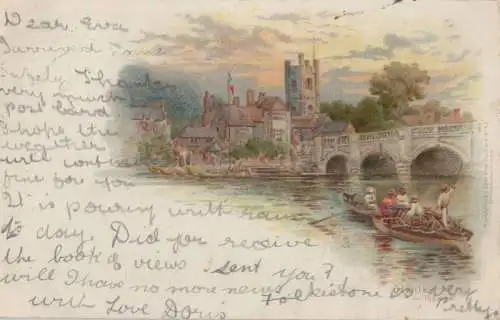 Dear Eva
Survived
safely Thanks
very much
post card
I hope the
weather
will continue
fine for you
It is pouring with rain
to day. Did for receive
the book of views I sent you?
will I have no more news Folkestone is very
with Love Doris Pretty